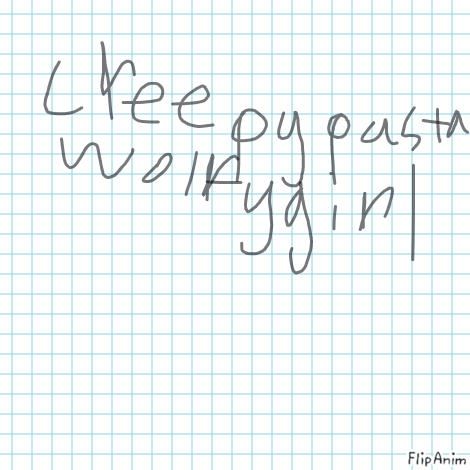 creepy pasta
wolf
y girl
FlipAnim